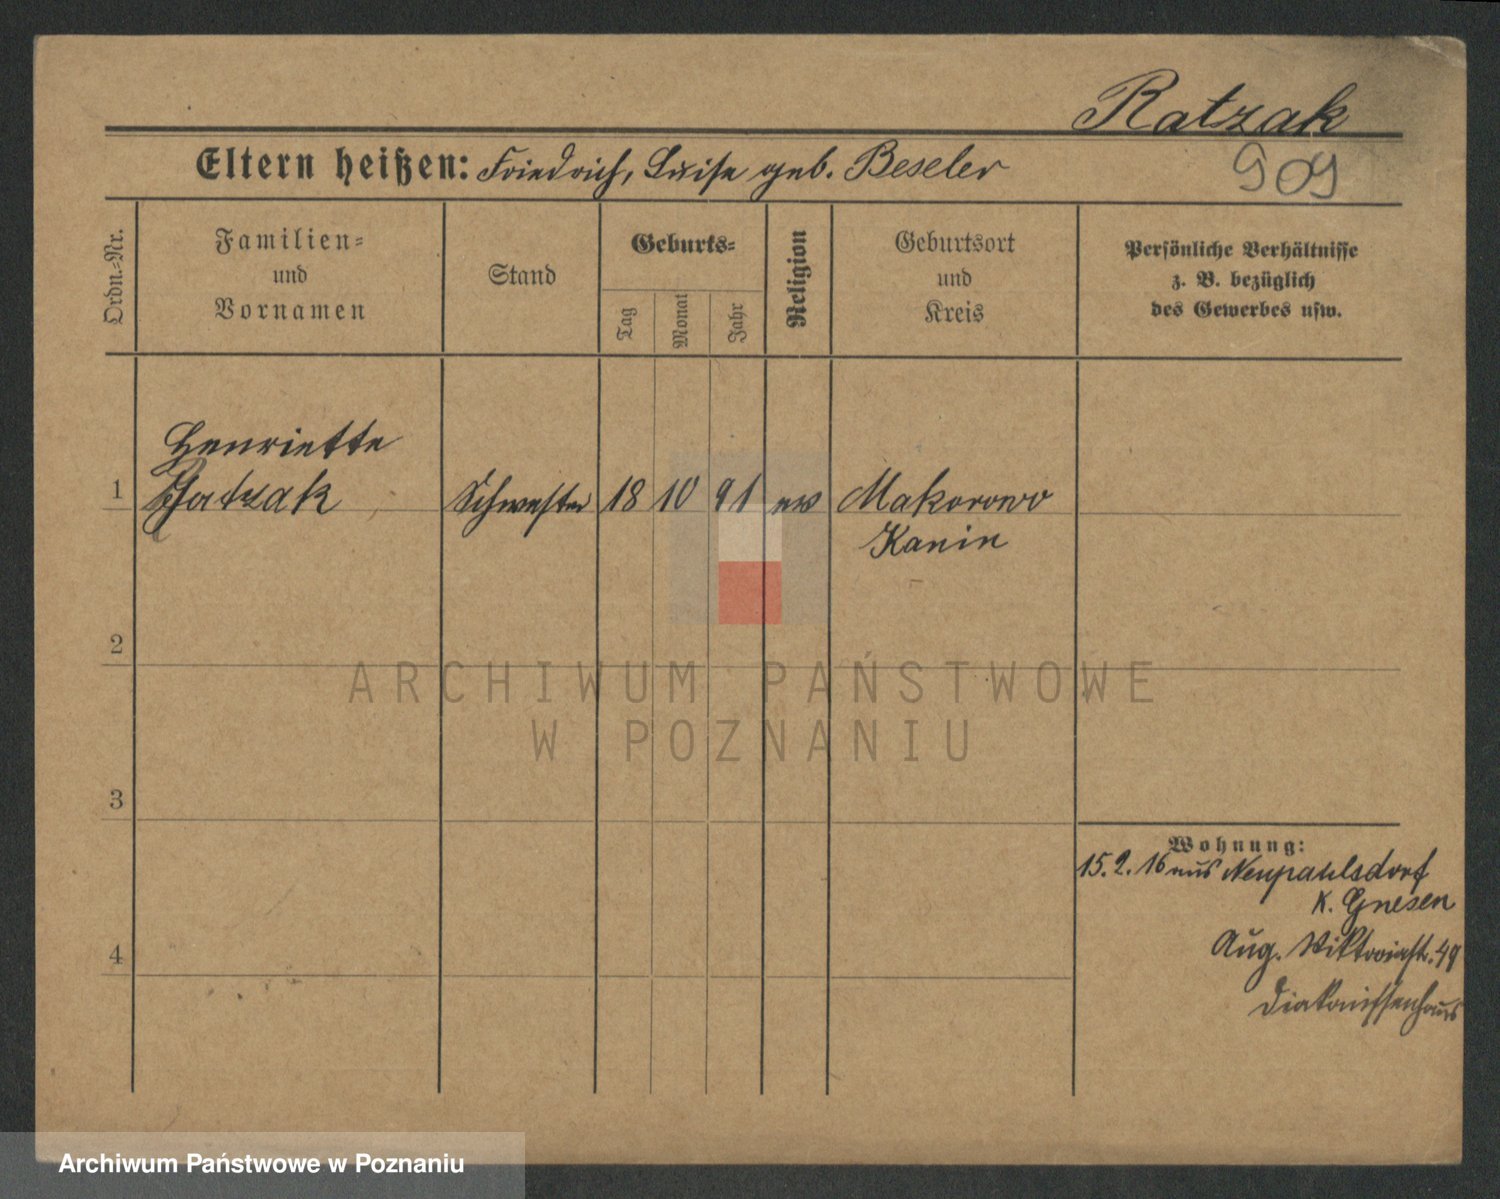 Ratzak
909
Eltern heißen: Friedrich, Luise geb. Beseler
Ordn.-Nr.
Familien-
und
Vornamen
Stand
Geburts-
Tag
Monat
Jahr
Religion
Geburtsort
und
Kreis
Persönliche Verhältnisse
z. B. bezüglich
des Gewerbes usw.
Henriette
1 Ratzak Schwester 18 10 91 ev Makorowo
Kanin
2
3
4
Wohnung:
15.2.16 aus Neupaulsdorf
K. Gnesen
Aug. Viktoriastr. 49
Diakonissenhaus
ARCHIWUM PAŃSTWOWE
W POZNANIU
Archiwum Państwowe w Poznaniu